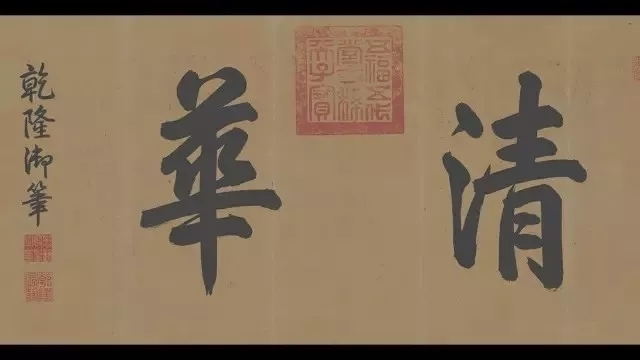 清華
五福五代
堂古稀
天子寶
乾隆御筆